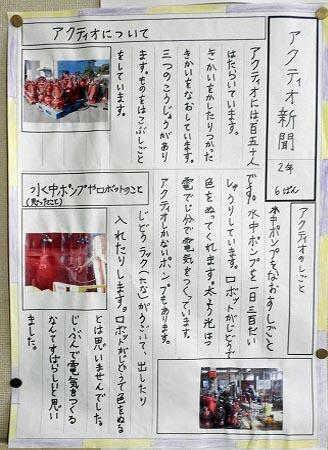 アクティオ新聞
2年
6ぱん
アクティオについて
アクティオには百五十人
はたらいています。
きかいをかしたりつかった
きかいをなおしています。
三つのこうじょうがあり
ます。ものをはこぶしごと
をしています。
アクティオのしごと
水中ポンプをなおすしごと
です。水中ポンプを一日三百だい
しゅうりしています。ロボットがじどうで
色をぬってくれます。太よう光はつ
電でじ分で電気をつくっています。
アクティオしかないポンプもあります。
じどうラック(たな)がうごいて、出したり
入れたりします。
水中ポンプやロボットのこと
(思ったこと)
ロボットがじどうで色をぬる
とは思いませんでした。
じぶんで電気をつくる
なんてすばらしいと思い
ました。